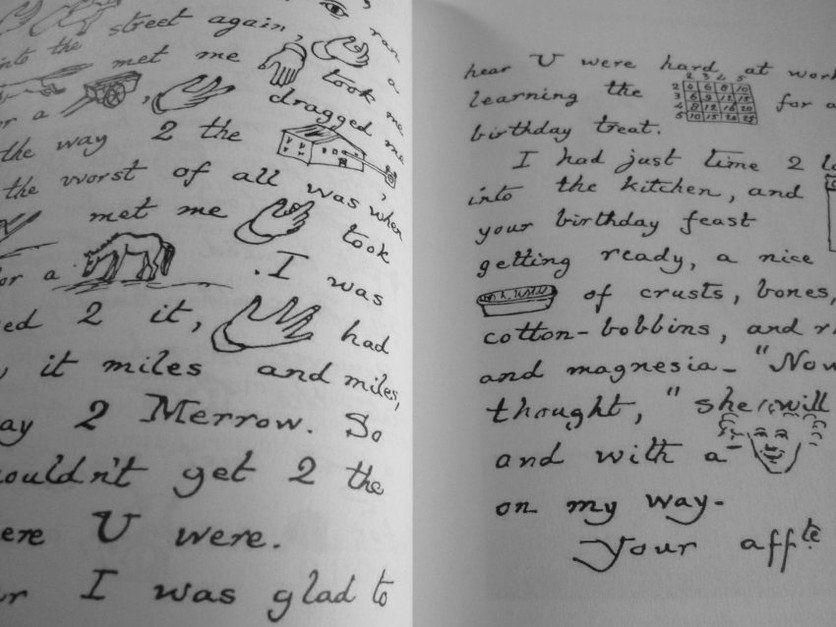 ran
into the street again, a
met me took me
for a , dragged me
the way 2 the ,
the worst of all was when
met me took
for a . I was
2 it, had
it miles and miles,
2 Merrow. So
couldn't get 2 the
U were.
I was glad to
hear U were hard at work
learning the for a
2 3 4 5
2 4 6 8 10
3 6 9 12 15
4 8 12 16 20
5 10 15 20 25
birthday treat.
I had just time 2
into the kitchen, and
your birthday feast
getting ready, a nice
of crusts, bones,
cotton-bobbins, and
and magnesia- "Now
thought, " she will
and with a
on my way-
Your affte